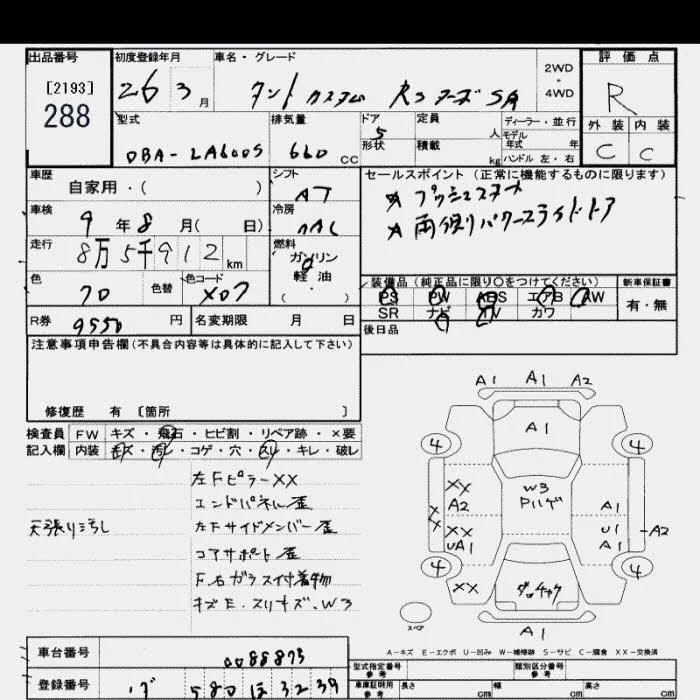 出品番号
[2193]
288
初度登録年月
26 3月
車名・グレード
タント カスタム RSトップエディションSA
2WD
・
4WD
評価点
R
外装 内装
C C
型式
DBA-LA600S
排気量
660 CC
ドア
5
形状
定員
人
積載
kg
ディーラー・並行
モデル年式 年
ハンドル 左・右
車歴
自家用・( )
シフト
AT
セールスポイント (正常に機能するものに限ります)
★ プッシュスタート
★ 両側パワースライドドア
車検
9年 8月( 日)
冷房
AAC
走行
8万5千912km
燃料
ガソリン
軽油・
( )
色
70
色替
色コード
X07
装備品 (純正品に限り〇をつけてください)
PS PW ABS エアB AW
SR ナビ TV カワ
新車保証書
有・無
R券 9550 円
名変期限 月 日
後日品
注意事項申告欄(不具合内容等は具体的に記入して下さい)
修復歴 有 [箇所 ]
検査員 FW キズ・飛石・ヒビ割・リペア跡・×要
記入欄 内装 キズ・汚レ・コゲ・穴・スリ・キレ・破レ
左FピラーXX
エンドパネル歪
天張り汚し
左Fサイドメンバー歪
コアサポート歪
F.右ガラス付着物
キズE.スリキズ.W3
A1 A1 A2
A1
4 4
XX
A2
W3
Pハゲ
A1
X
XX
UA1
U1
A1
A2
4 4
XX
ダッチャク
スペア
A1
A-キズ E-エクボ U-凹み W-補修跡 S-サビ C-腐食 XX-交換済
車台番号 0088873
登録番号 580 ほ 3239
型式指定番号
参考
類別区分番号
参考
車庫証明用
参考
長さ cm
幅 cm
高さ cm